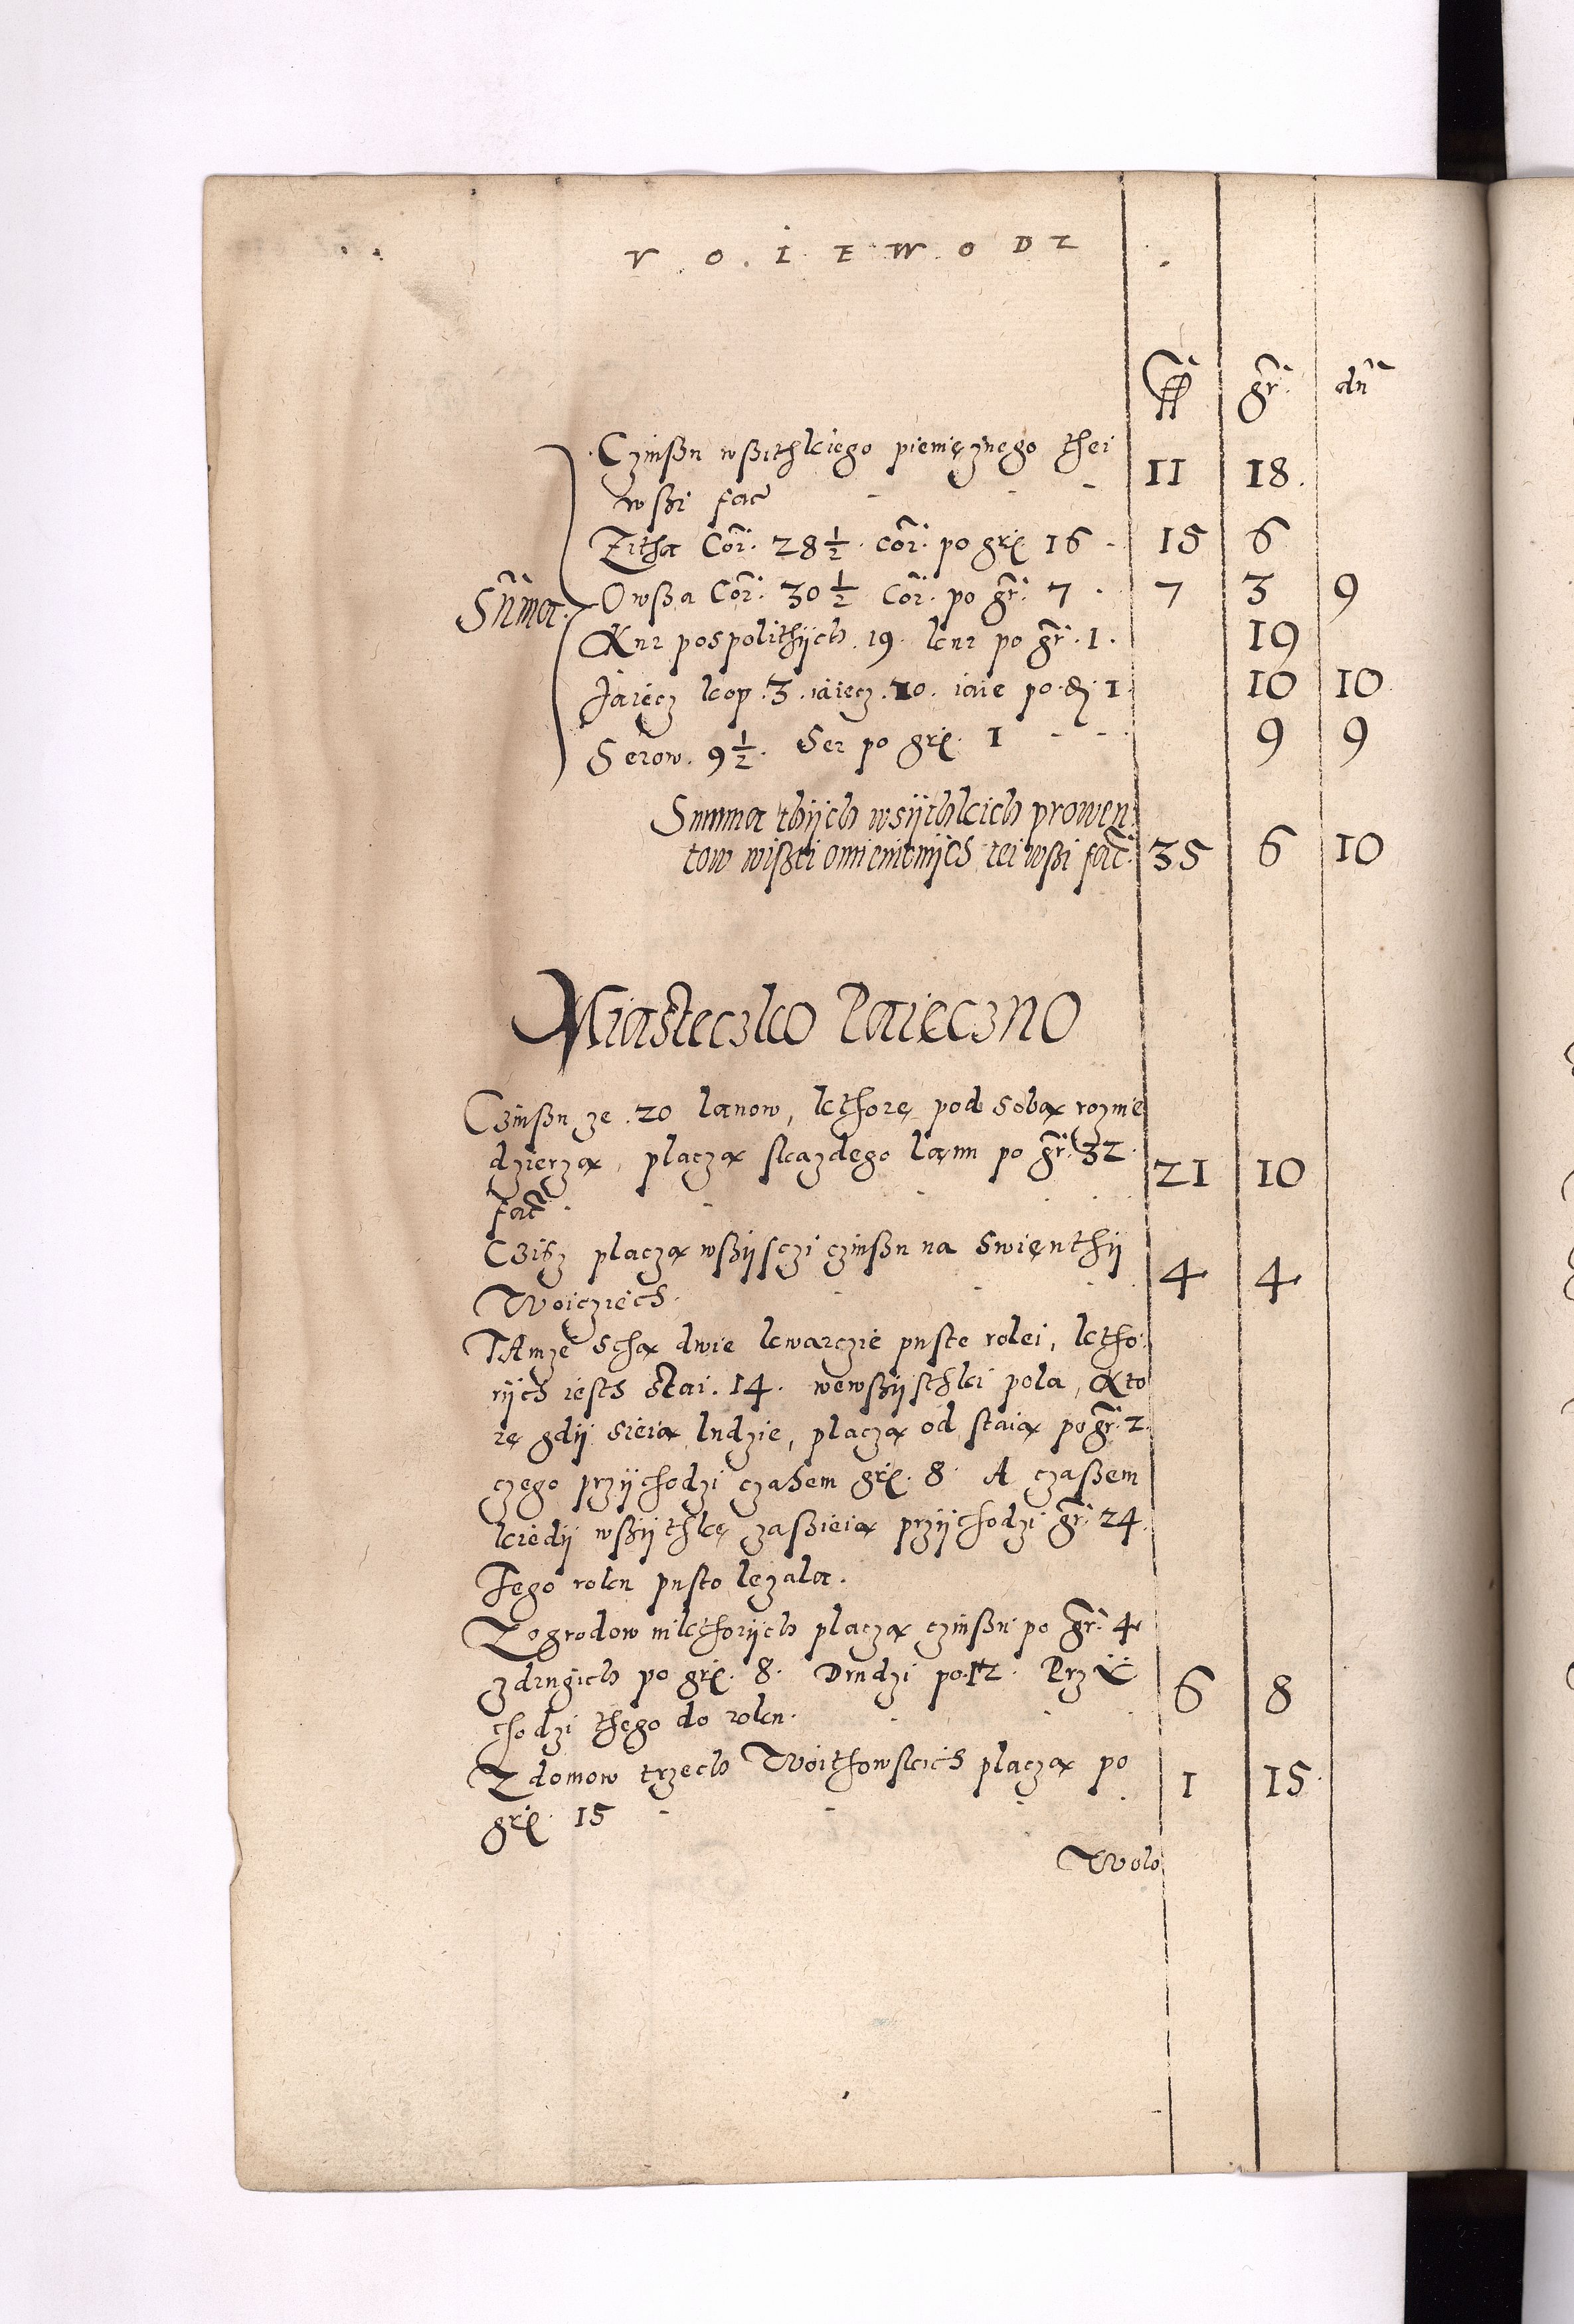 VOIEWODZ
ff gr. dn
Czinßu wßithkiego pieniężnego thei
wßi fac 11 18.
Zitha Cor. 28 1/2. cor. po gr. 16 15 6
Summa. Owßa Cor. 30 1/2 Cor. po gr. 7. 7 3 9
Kur pospolithych. 19. kur po gr. 1. 19
Jaiecz kop. 3. iaiecz. 10. iaie po d. 1. 10 10
Serow. 9 1/2. Ser po gr. 1 9 9
Summa thijch wsijthkich prowen
tow wißei omienionijch tei wßi fac. 35 6 10
Miasteczko Paięczno
Czinßu ze. 20 lanow, kthorę pod sobą rozmie
dzierzą, płaczą skazdego lanu po gr. 32.
fac. 21 10
Czisz płaczą wßijsczi czinßu na Swięnthij
Woicziech. 4 4
TAmze sthą dwie kwarczie puste rolei, ktho.
rijch iesth stai. 14. wewßijsthki pola, Kto
rę gdij sieią ludzie, płaczą od staią po gr. 2.
czego przijchodzi czasem gr. 8. A czaßem
kiedij wßijthkę zaßieią przijchodzi gr. 24.
Tego roku pusto lęzala.
Zogrodow niktforijch płaczą czinßu po gr. 4
zdrugich po gr. 8. Drudzi po. 12. Przij
chodzi thego do roku. 6 8
Z domow trzech Woithowskich płaczą po
gr. 15 1 15.
Wolo